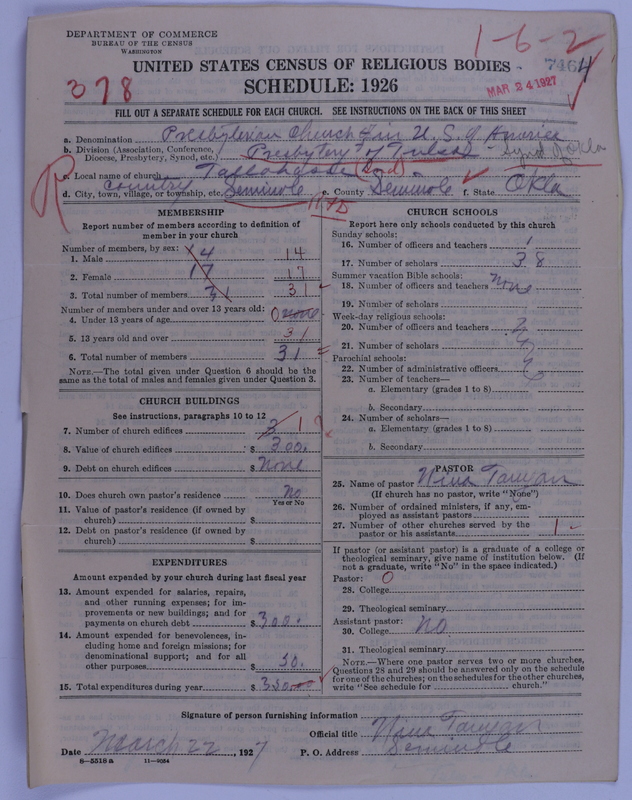 DEPARTMENT OF COMMERCE
BUREAU OF THE CENSUS
WASHINGTON
1-6-2
7464
MAR 24 1927
378
UNITED STATES CENSUS OF RELIGIOUS BODIES
SCHEDULE: 1926
FILL OUT A SEPARATE SCHEDULE FOR EACH CHURCH. SEE INSTRUCTIONS ON THE BACK OF THIS SHEET
a. Denomination Presbyterian Church in U. S. of America
b. Division (Association, Conference, Diocese, Presbytery, Synod, etc.) Presbytery of Tulsa - Synod of Okla
c. Local name of church (Ind)
R
d. City, town, village, or township, etc. Country Seminole e. County Seminole f. State Okla
MEMBERSHIP
Report number of members according to definition of member in your church
Number of members, by sex:
1. Male 14 14
2. Female 17 17
3. Total number of members 31 31
Number of members under and over 13 years old:
4. Under 13 years of age 0 none
5. 13 years old and over 31
6. Total number of members 31
NOTE.—The total given under Question 6 should be the same as the total of males and females given under Question 3.
CHURCH BUILDINGS
See instructions, paragraphs 10 to 12
7. Number of church edifices 1
8. Value of church edifices $ 300.
9. Debt on church edifices $ None
10. Does church own pastor's residence No
Yes or No
11. Value of pastor's residence (if owned by church) $
12. Debt on pastor's residence (if owned by church) $
EXPENDITURES
Amount expended by your church during last fiscal year
13. Amount expended for salaries, repairs, and other running expenses; for improvements or new buildings; and for payments on church debt $ 300.
14. Amount expended for benevolences, including home and foreign missions; for denominational support; and for all other purposes $ 50.
15. Total expenditures during year $ 350
CHURCH SCHOOLS
Report here only schools conducted by this church
Sunday schools:
16. Number of officers and teachers 1
17. Number of scholars 38
Summer vacation Bible schools:
18. Number of officers and teachers none
19. Number of scholars
Week-day religious schools:
20. Number of officers and teachers
21. Number of scholars
Parochial schools:
22. Number of administrative officers
23. Number of teachers—
a. Elementary (grades 1 to 8)
b. Secondary
24. Number of scholars—
a. Elementary (grades 1 to 8)
b. Secondary
PASTOR
25. Name of pastor
(If church has no pastor, write "None")
26. Number of ordained ministers, if any, employed as assistant pastors
27. Number of other churches served by the pastor or his assistants 1
If pastor (or assistant pastor) is a graduate of a college or theological seminary, give name of institution below. (If not a graduate, write "No" in the space indicated.)
Pastor: 0
28. College
29. Theological seminary
Assistant pastor:
30. College No
31. Theological seminary
NOTE.—Where one pastor serves two or more churches, Questions 28 and 29 should be answered only on the schedule for one of the churches; on the schedules for the other churches, write "See schedule for church."
Signature of person furnishing information
Official title
Date March 22, 1927 P. O. Address Seminole
8—5518 a 11—9034